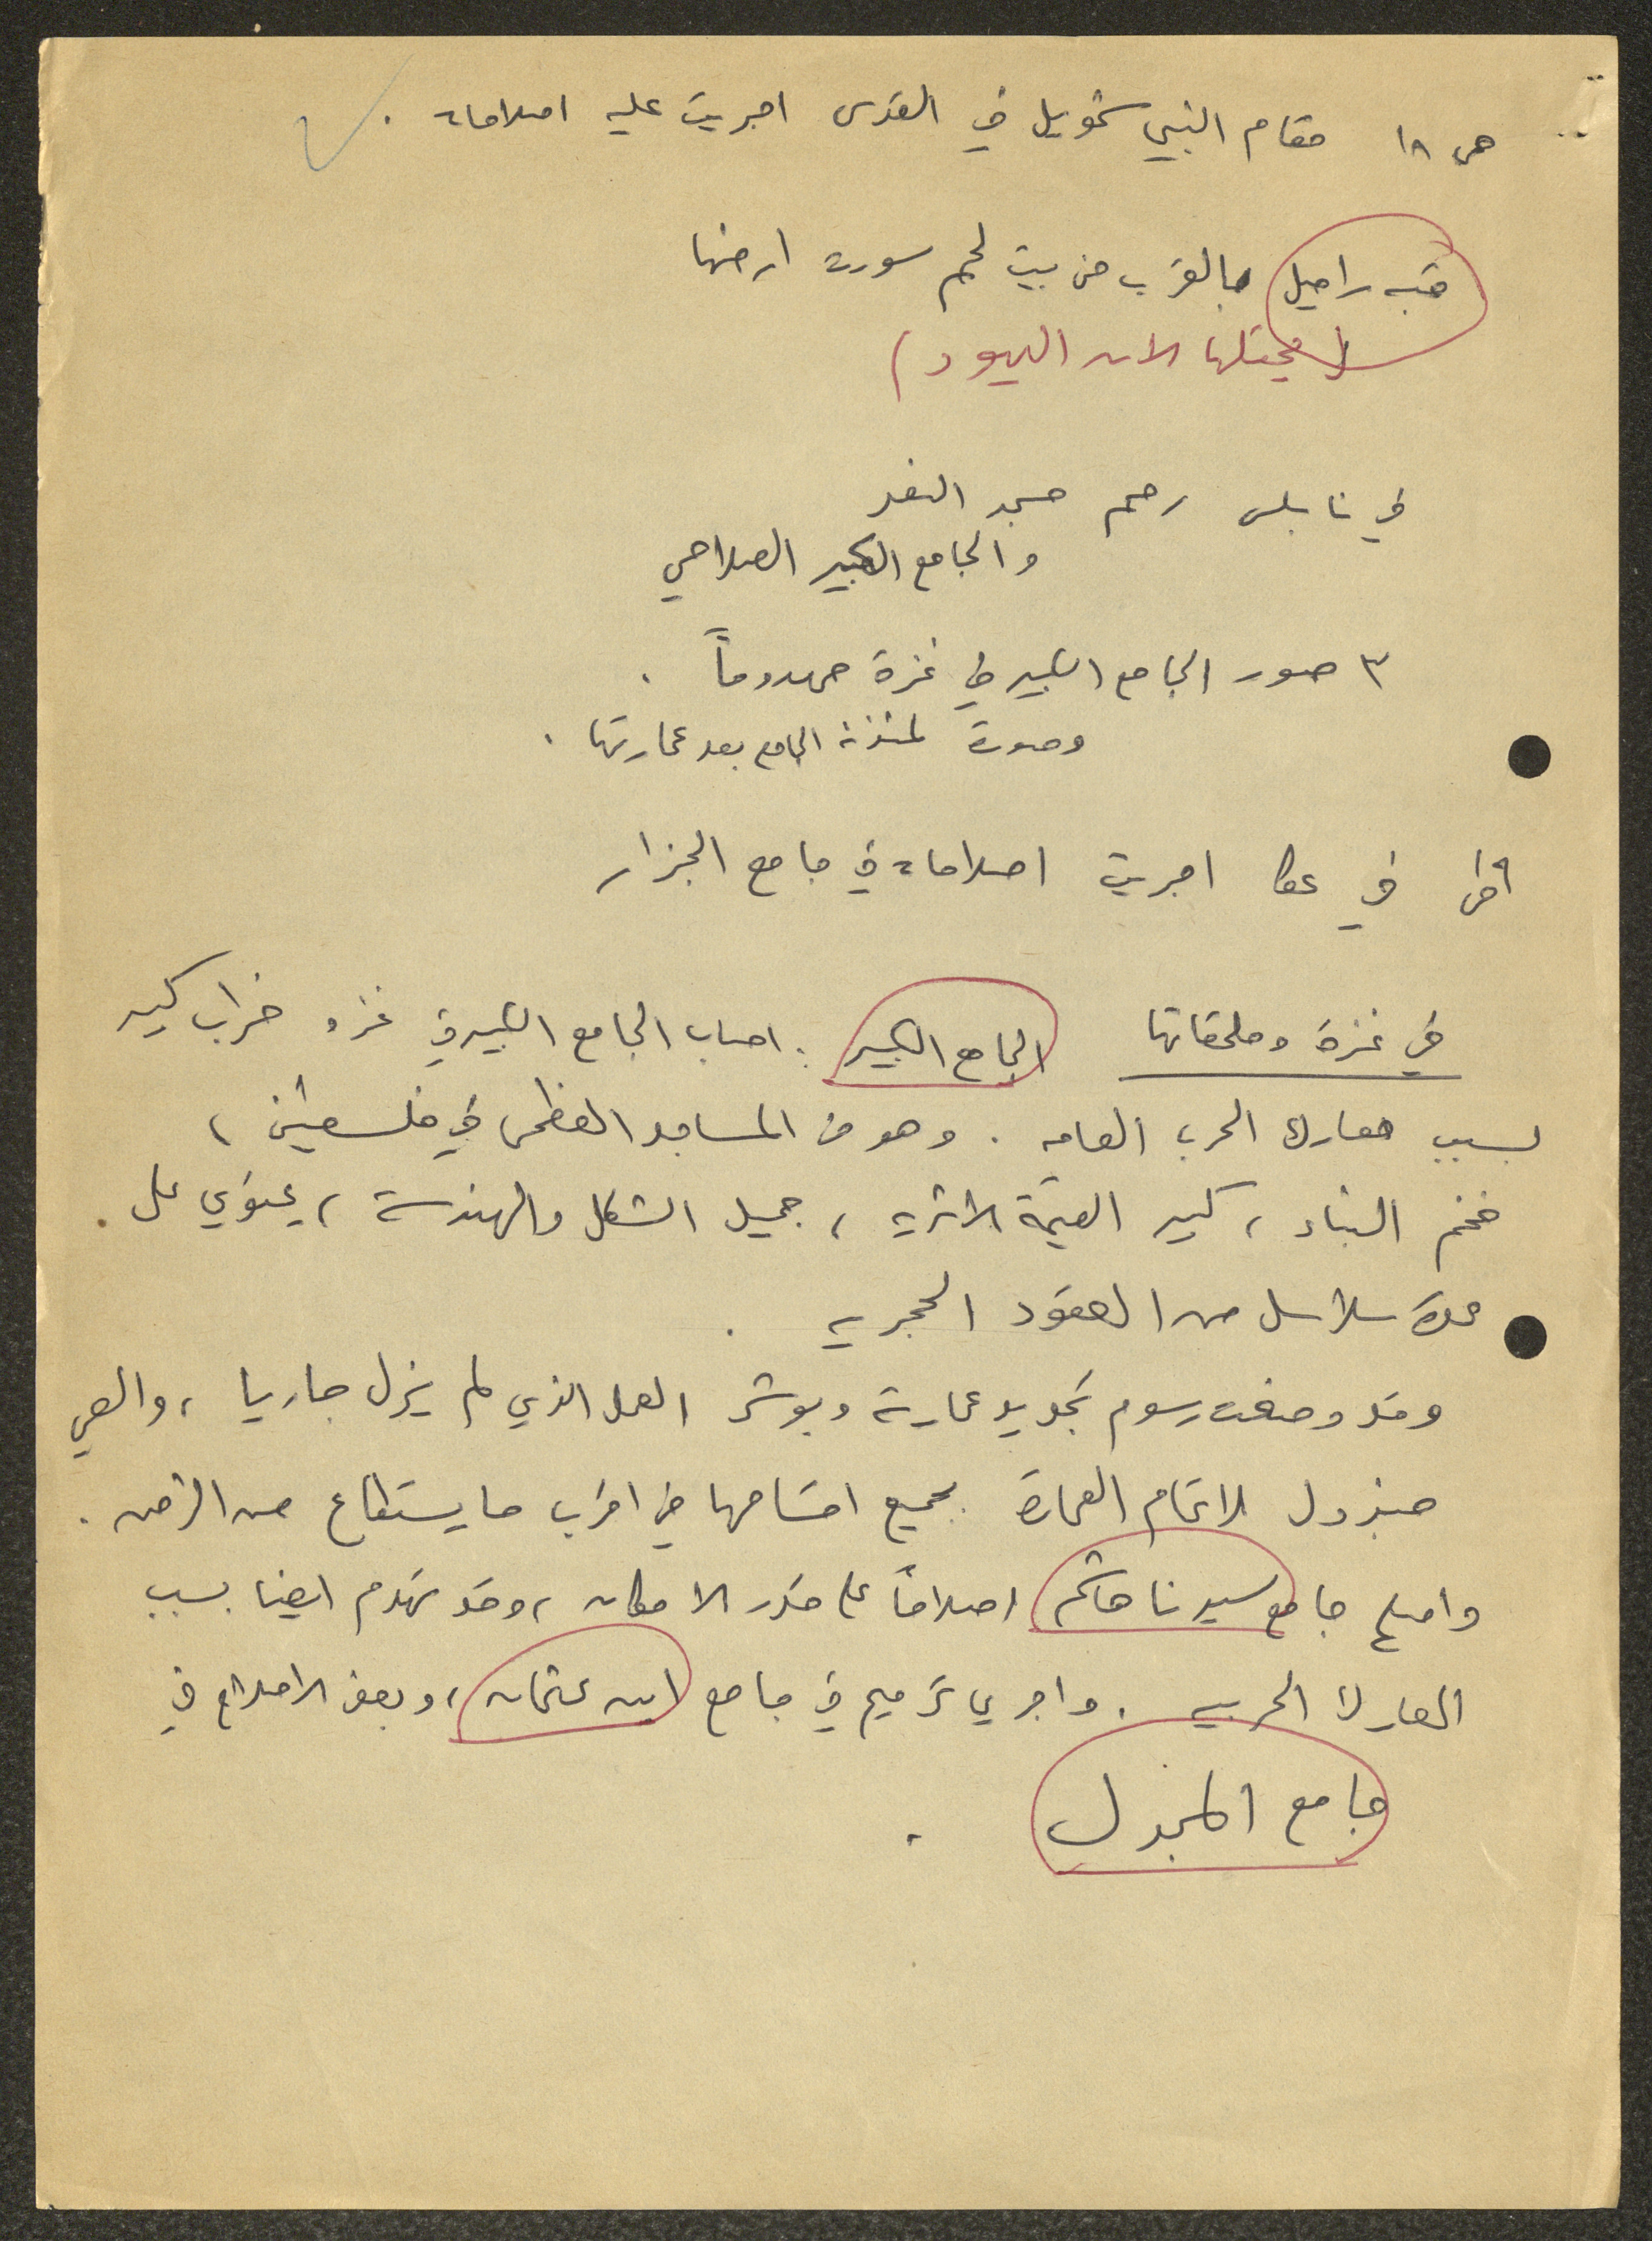 ص ١٨ مقام النبي سموئيل في القدس اجريت عليه اصلاحات .
قبة راحيل بالقرب من بيت لحم سورت ارضها
( يحتلها الان اليهود )
في نابلس رمم مسجد النصر
والجامع الكبير الصلاحي
٣ صور الجامع الكبير في غزة مهدوماً .
وصورة لمئذنة الجامع بعد عمارتها .
في عكا اجريت اصلاحات في جامع الجزار
في غزة وملحقاتها الجامع الكبير : اصاب الجامع الكبير في غزه خراب كبير
بسبب معارك الحرب العامه . وهو من المساجد العظمى في فلسطين ،
فخم البناء ، كبير القيمة الاثريه ، جميل الشكل والهندسة ، يحتوي على
عدة سلاسل من العقود الحجريه .
وقد وضعت رسوم تجديد عمارته وبوشر العمل الذي لم يزل جاريا ، والسعي
مبذول لاتمام العمارة بجميع اقسامها في اقرب ما يستطاع من الزمن .
واصلح جامع سيدنا هاشم اصلاحاً على قدر الامكان ، وقد تهدم ايضا بسبب
المعارك الحربيه . واجري ترميم في جامع ابن عثمان ، وبعض الاصلاح في
جامع المجدل .